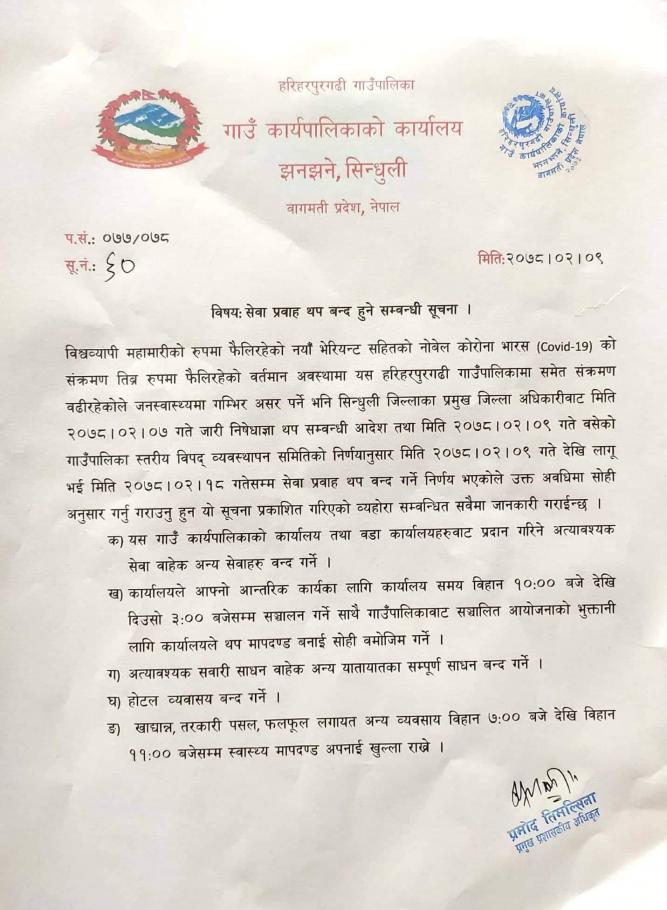 हरिहरपुरगढी गाउँपालिका
गाउँ कार्यपालिकाको कार्यालय
झनझने, सिन्धुली
वागमती प्रदेश, नेपाल
हरिहरपुरगढी गाउँपालिका
गाउँ कार्यपालिकाको कार्यालय
झनझने, सिन्धुली
वागमती प्रदेश नेपाल
प.सं.: ०७७/०७८
सू.नं.: ६०
मिति:२०७८।०२।०९
विषय: सेवा प्रवाह थप बन्द हुने सम्बन्धी सूचना ।
विश्वव्यापी महामारीको रुपमा फैलिरहेको नयाँ भेरियन्ट सहितको नोबेल कोरोना भारस (Covid-19) को
संक्रमण तिब्र रुपमा फैलिरहेको वर्तमान अवस्थामा यस हरिहरपुरगढी गाउँपालिकामा समेत संक्रमण
वढीरहेकोले जनस्वास्थ्यमा गम्भिर असर पर्ने भनि सिन्धुली जिल्लाका प्रमुख जिल्ला अधिकारीवाट मिति
२०७८।०२।०७ गते जारी निषेधाज्ञा थप सम्बन्धी आदेश तथा मिति २०७८।०२।०९ गते वसेको
गाउँपालिका स्तरीय विपद् व्यवस्थापन समितिको निर्णयानुसार मिति २०७८।०२।०९ गते देखि लागू
भई मिति २०७८।०२।१८ गतेसम्म सेवा प्रवाह थप वन्द गर्ने निर्णय भएकोले उक्त अवधिमा सोही
अनुसार गर्नु गराउनु हुन यो सूचना प्रकाशित गरिएको व्यहोरा सम्वन्धित सवैमा जानकारी गराईन्छ ।
क) यस गाउँ कार्यपालिकाको कार्यालय तथा वडा कार्यालयहरुवाट प्रदान गरिने अत्यावश्यक
सेवा वाहेक अन्य सेवाहरु वन्द गर्ने ।
ख) कार्यालयले आफ्नो आन्तरिक कार्यका लागि कार्यालय समय विहान १०:०० बजे देखि
दिउसो ३:०० बजेसम्म सञ्चालन गर्ने साथै गाउँपालिकावाट सञ्चालित आयोजनाको भुक्तानी
लागि कार्यालयले थप मापदण्ड बनाई सोही वमोजिम गर्ने ।
ग) अत्यावश्यक सवारी साधन वाहेक अन्य यातायातका सम्पूर्ण साधन बन्द गर्ने ।
घ) होटल व्यवासय बन्द गर्ने ।
ङ) खाद्यान्न, तरकारी पसल, फलफूल लगायत अन्य व्यवसाय विहान ७:०० बजे देखि विहान
११:०० बजेसम्म स्वास्थ्य मापदण्ड अपनाई खुल्ला राख्ने ।
प्रमोद तिमल्सिना
प्रमुख प्रशासकीय अधिकृत